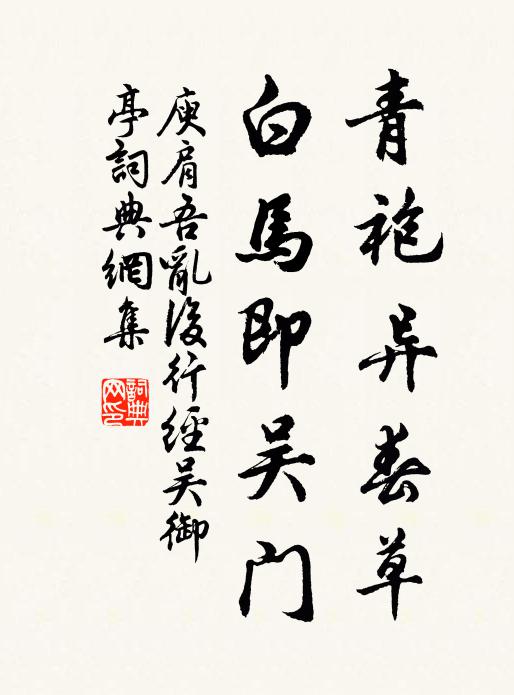 青袍异春草
白馬即吴门
庾肩吾亂後行經吴御
亭詞典網集
詞典网印